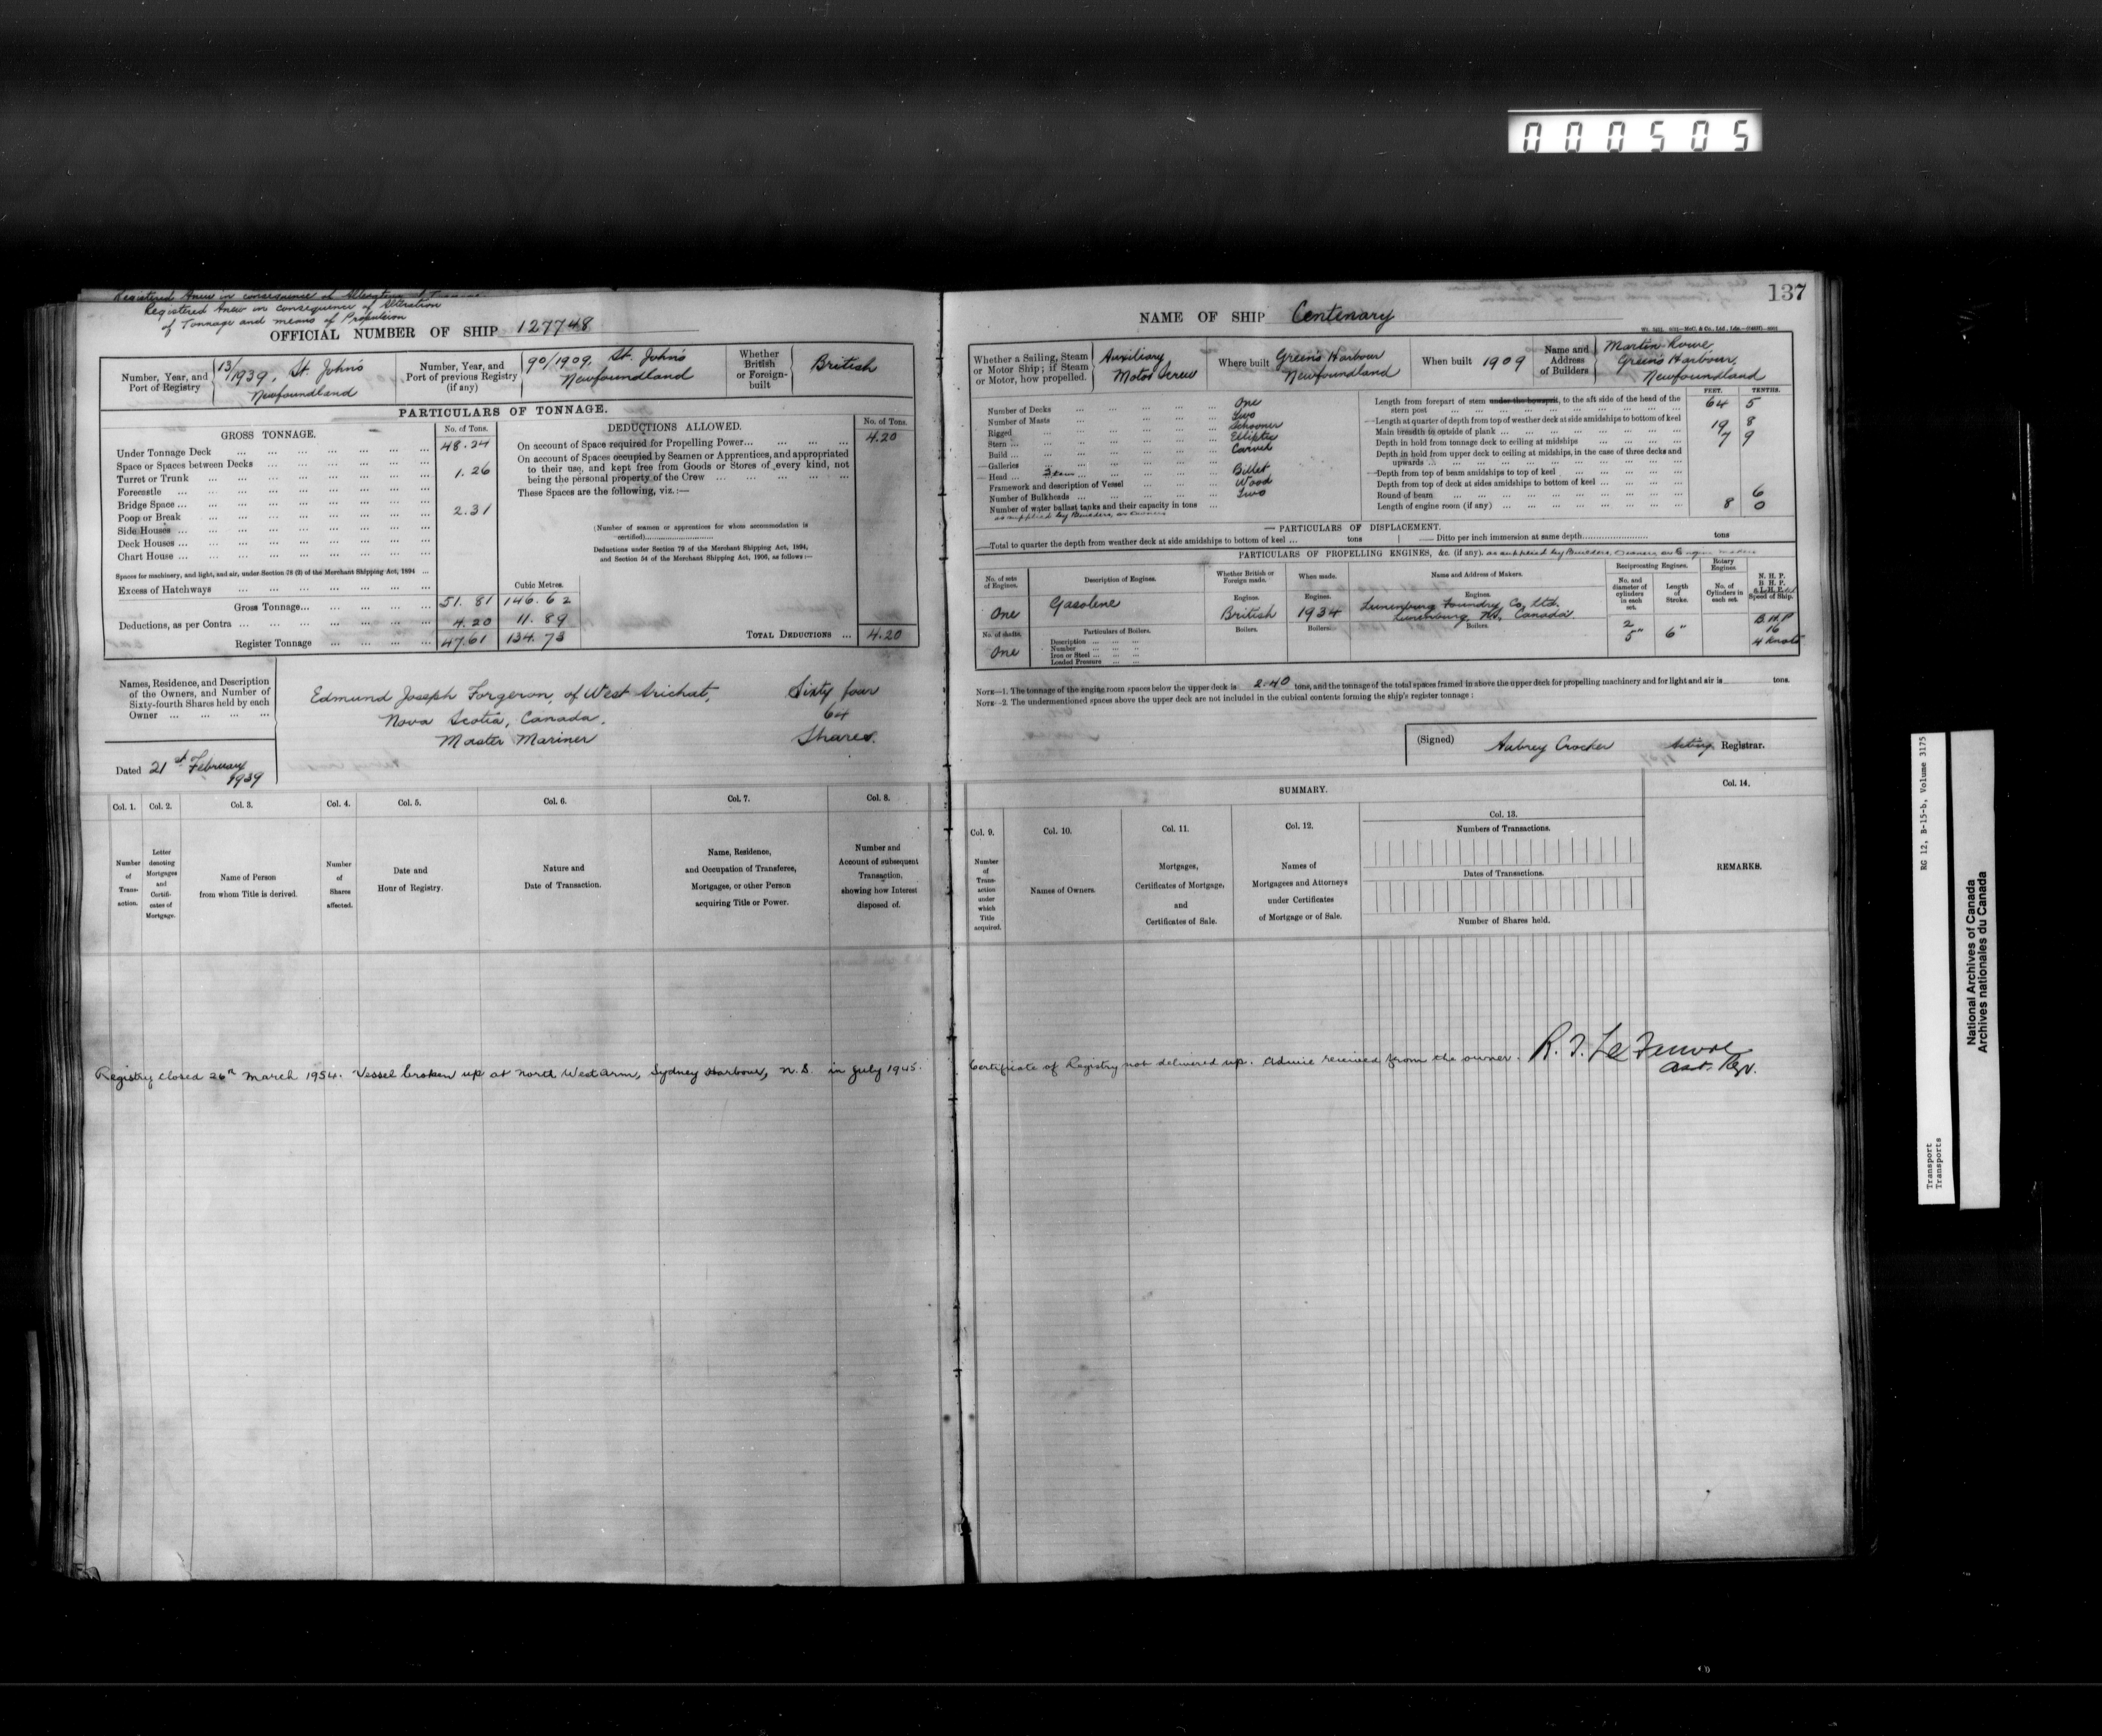 000505
137
Registered Anew in consequence of Alteration
of Tonnage and means of Propulsion
OFFICIAL NUMBER OF SHIP 127748
Number, Year, and Port of Registry 13/1939, St. John's Newfoundland
Number, Year, and Port of previous Registry (if any) 90/1909, St. John's Newfoundland
Whether British or Foreign-built British
PARTICULARS OF TONNAGE.
GROSS TONNAGE. No. of Tons.
Under Tonnage Deck ... 48.24
Space or Spaces between Decks ...
Turret or Trunk ... 1.26
Forecastle ...
Bridge Space ...
Poop or Break ... 2.31
Side Houses ...
Deck Houses ...
Chart House ...
Spaces for machinery, and light, and air, under Section 78 (2) of the Merchant Shipping Act, 1894 ...
Excess of Hatchways ...
Cubic Metres.
Gross Tonnage... 51.81 146.62
Deductions, as per Contra ... 4.20 11.89
Register Tonnage ... 47.61 134.73
DEDUCTIONS ALLOWED. No. of Tons.
On account of Space required for Propelling Power... 4.20
On account of Spaces occupied by Seamen or Apprentices, and appropriated
to their use, and kept free from Goods or Stores of every kind, not
being the personal property of the Crew ...
These Spaces are the following, viz.:—
(Number of seamen or apprentices for whom accommodation is
certified)
Deductions under Section 79 of the Merchant Shipping Act, 1894,
and Section 54 of the Merchant Shipping Act, 1906, as follows:—
TOTAL DEDUCTIONS ... 4.20
Names, Residence, and Description
of the Owners, and Number of
Sixty-fourth Shares held by each
Owner ...
Edmund Joseph Forgeron, of West Arichat, Sixty four
Nova Scotia, Canada. 64
Master Mariner Shares.
Dated 21st February 1939
Col. 1. Col. 2. Col. 3. Col. 4. Col. 5. Col. 6. Col. 7. Col. 8.
Number of Transaction.
Letter denoting Mortgages and Certificates of Mortgage.
Name of Person from whom Title is derived.
Number of Shares affected.
Date and Hour of Registry.
Nature and Date of Transaction.
Name, Residence, and Occupation of Transferee, Mortgagee, or other Person acquiring Title or Power.
Number and Account of subsequent Transaction, showing how Interest disposed of.
Registry closed 26th March 1954. Vessel broken up at North West Arm, Sydney Harbour, N.S. in July 1945.
NAME OF SHIP Centenary
Whether a Sailing, Steam or Motor Ship; if Steam or Motor, how propelled. Auxiliary Motor Screw
Where built Green's Harbour Newfoundland
When built 1909
Name and Address of Builders Martin Rowe, Green's Harbour, Newfoundland
Number of Decks ... One
Number of Masts ... Two
Rigged ... Schooner
Stern ... Elliptic
Build ... Carvel
Galleries ...
Head ... Billet
Framework and description of Vessel ... Wood
Number of Bulkheads ... Two
Number of water ballast tanks and their capacity in tons ...
as supplied by Builders, or Owners
FEET. TENTHS.
Length from forepart of stem under the bowsprit, to the aft side of the head of the
stern post ... 64 5
Length at quarter of depth from top of weather deck at side amidships to bottom of keel
Main breadth to outside of plank ... 19 8
Depth in hold from tonnage deck to ceiling at midships ... 7 9
Depth in hold from upper deck to ceiling at midships, in the case of three decks and
upwards ...
Depth from top of beam amidships to top of keel ...
Depth from top of deck at sides amidships to bottom of keel ...
Round of beam ... 6
Length of engine room (if any) ... 8 0
PARTICULARS OF DISPLACEMENT.
Total to quarter the depth from weather deck at side amidships to bottom of keel ... tons Ditto per inch immersion at same depth tons
PARTICULARS OF PROPELLING ENGINES, &c. (if any). as supplied by Builders, Owners, or Engine makers
No. of sets of Engines. Description of Engines. Whether British or Foreign made. When made. Name and Address of Makers. Reciprocating Engines. Rotary Engines.
No. and diameter of cylinders in each set. Length of Stroke. No. of Cylinders in each set. N.H.P. B.H.P. & I.H.P. Speed of Ship.
Engines. Engines. Engines.
One Gasolene British 1934 Lunenburg Foundry Co. Ltd. Lunenburg N.S. Canada. 2 5" 6" B.H.P 16 4 Knots
No. of shafts. Particulars of Boilers. Boilers. Boilers. Boilers.
One Description ... Number ... Iron or Steel ... Loaded Pressure ...
NOTE—1. The tonnage of the engine room spaces below the upper deck is 2.40 tons, and the tonnage of the total spaces framed in above the upper deck for propelling machinery and for light and air is tons.
NOTE—2. The undermentioned spaces above the upper deck are not included in the cubical contents forming the ship's register tonnage:
(Signed) Aubrey Crocker Acting Registrar.
SUMMARY. Col. 14.
Col. 9. Col. 10. Col. 11. Col. 12. Col. 13.
Number of Transaction under which Title acquired.
Names of Owners.
Mortgages, Certificates of Mortgage, and Certificates of Sale.
Names of Mortgagees and Attorneys under Certificates of Mortgage or of Sale.
Numbers of Transactions.
Dates of Transactions.
Number of Shares held.
REMARKS.
Certificate of Registry not delivered up. Advice received from the owner. R. J. LeFeuvre
Asst. Rgr.
RG 12, B-15-b, Volume 3175
Transport
Transports
National Archives of Canada
Archives nationales du Canada